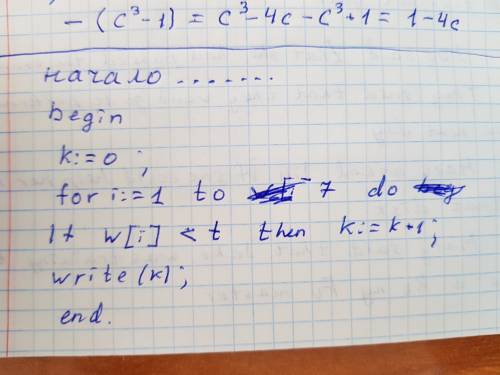 - (c³-1) = c³-4c-c³+1 = 1-4c
начало .......
begin
k:=0 ;
for i:=1 to 7 do
If w[i] < t then k:=k+1;
write(k);
end.